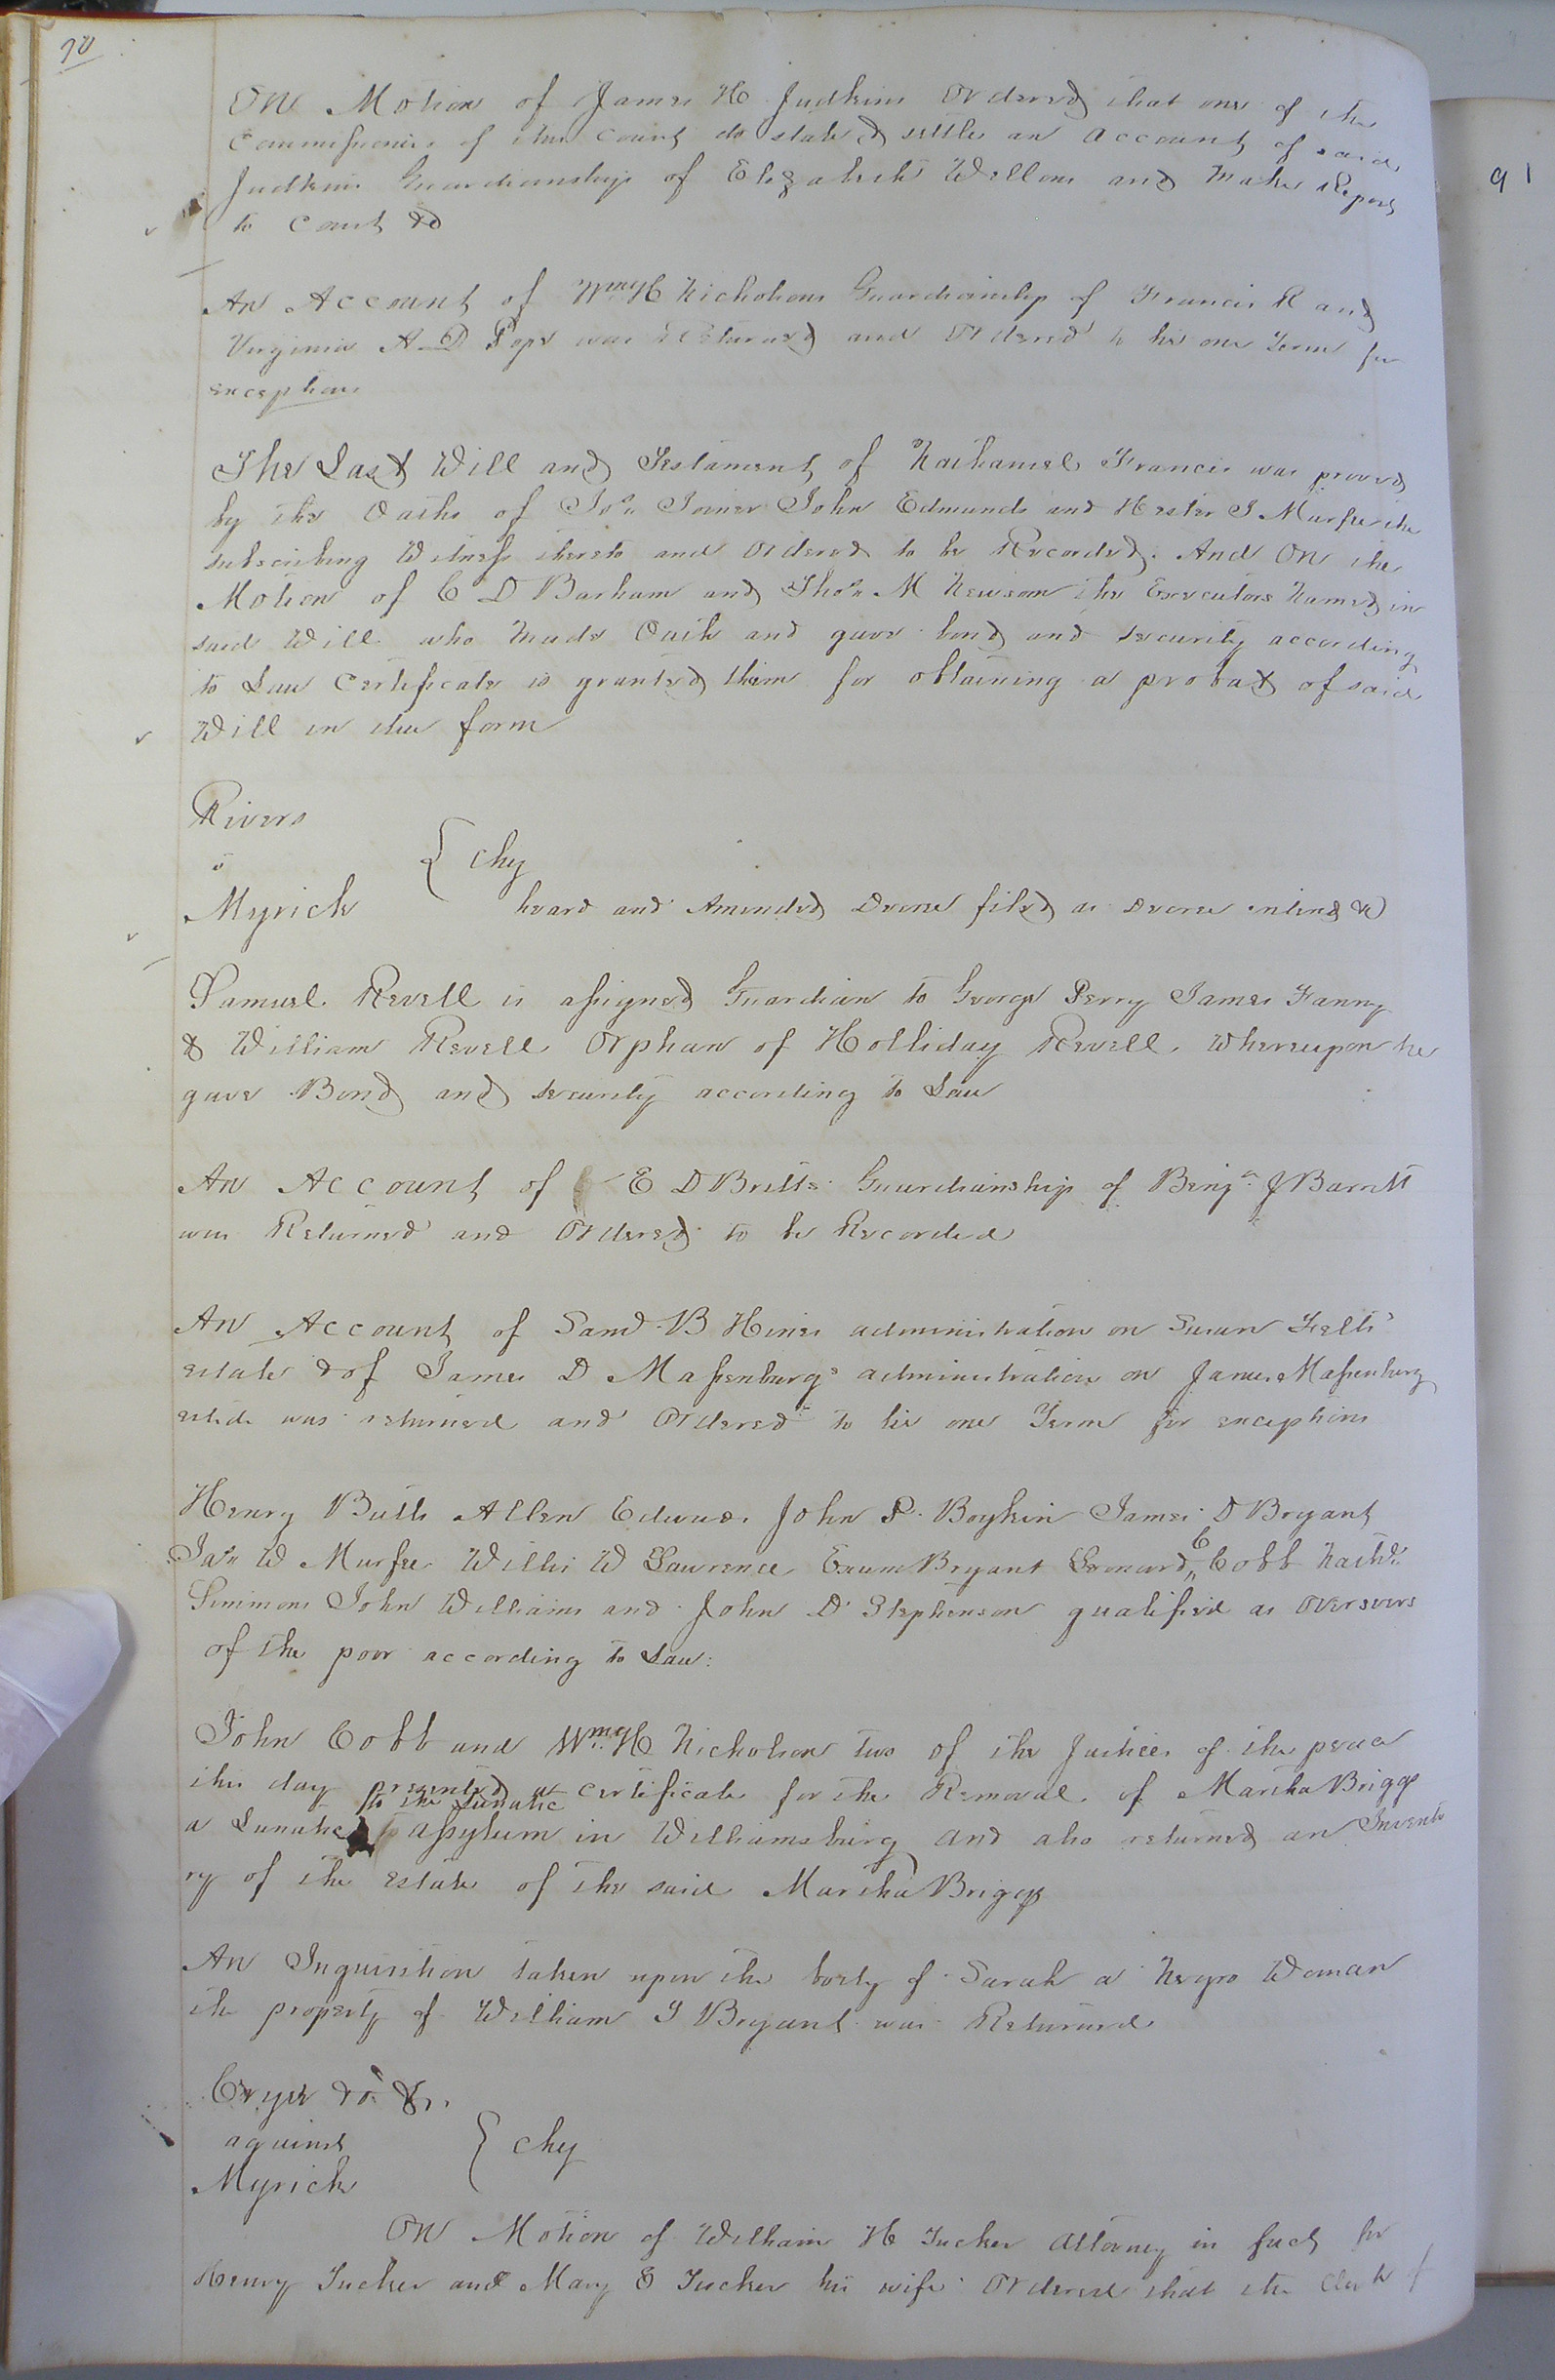 90
91
On Motion of James H Judkins Ordered that one of the
Commissioners of this Court do state & settle an Account of said
Judkins Guardianship of Elizabeth Wellons and Make Report
to Court &c
An Account of Wm H Nicholsons Guardianship of Francis R and
Virginia A D Pope was Returned and Ordered to lie one Term for
exceptions
The Last Will and Testament of Nathaniel Francis was proved
by the Oaths of Jos Joiner John Edmunds and Hester J Murfee the
subscribing Witness thereto and Ordered to be Recorded. And On the
Motion of C D Barham and Thos M Newsom the Executors Named in
said Will who Made Oath and gave bond and security according
to Law Certificate is granted them for obtaining a probat of said
Will in due form
Rivers
vs
Myrick
{ Chy
heard and Amended Decree filed as Decree interd &c
Samuel Revell is assigned Guardian to George Perry James Fanny
& William Revell Orphan of Holliday Revell. Whereupon he
gave Bond and security according to Law
An Account of E D Britts Guardianship of Benja J Barrett
was Returned and Ordered to be Recorded
An Account of Saml B Hines administration on Susan Felts
estate & of James D Massenburgs administration on James Massenburg
estate was returned and Ordered to lie one Term for exceptions
Henry Butts Allen Edwards John P. Boykin James D Bryant
Jas W Murfee Willis W Lawrence Exum Bryant Leonard C Cobb Nathl
Simmons John Williams and John D Stephenson qualified as Overseers
of the poor according to Law.
John Cobb and Wm H Nicholson two of the Justices of the peace
this day presented a certificate for the Removal of Martha Briggs
a Lunatic to the Lunatic assylum in Williamsburg and also returned an Invento
ry of the estate of the said Martha Briggs
An Inquisition taken upon the body of Sarah a Negro Woman
the property of William J Bryant was Returned
against
Myrick
{ Chy
On Motion of William H Tucker Attorney in fact for
Henry Tucker and Mary E Tucker his wife Ordered that the Clerk of